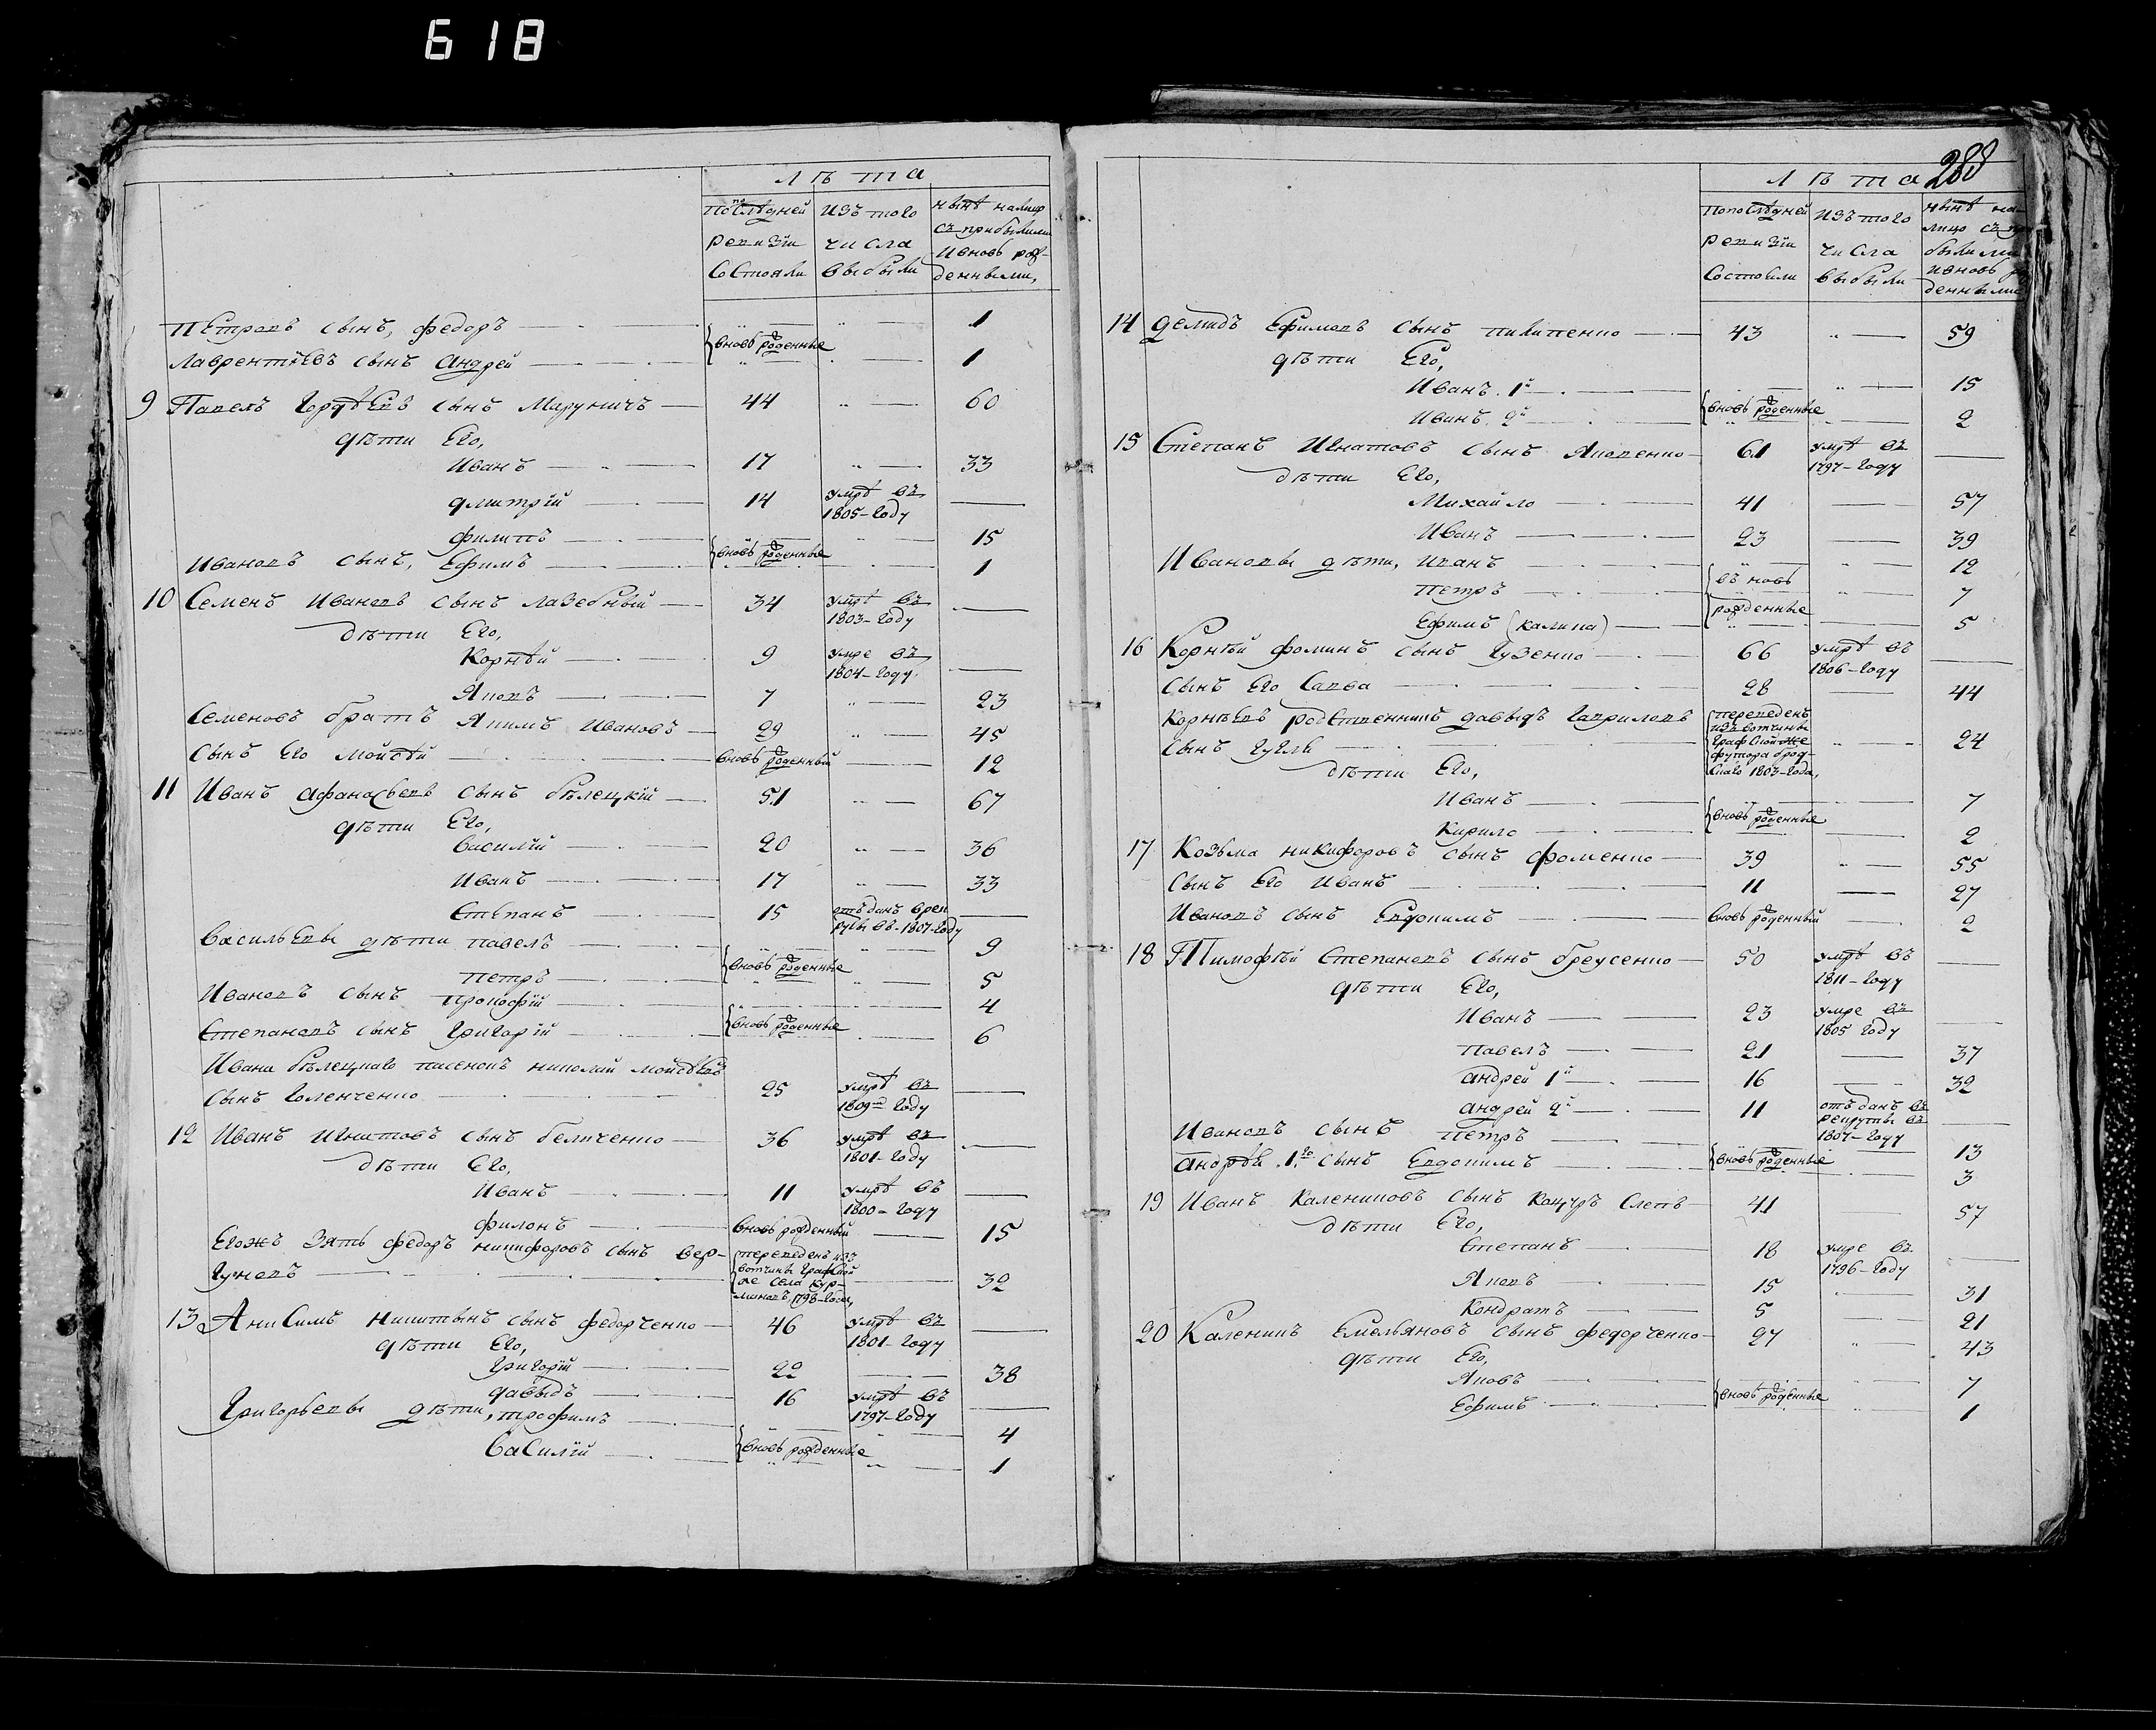 618
лѣта
По последней Изъ того нынѣ налицо
ревизіи числа съ прибылыми
Состояли выбыли И вновь рож-
денными,
Петровъ сынъ, Федоръ 1
вновь рожденные
Лаврентіевъ сынъ Андрей 1
9 Павелъ Гордѣевъ сынъ Маруничъ 44 60
дѣти Его,
Иванъ 17 33
Дмитрій 14 умрѣ въ
1805-году
Филипъ 15
вновь рожденные
Ивановъ сынъ, Ефимъ 1
10 Семенъ Ивановъ сынъ Лазебный 34 умрѣ въ
1803-году
дѣти Его,
Корнѣй 9 умре въ
1804-году
Яковъ 7 23
Семеновъ братъ Якимъ Ивановъ 29 45
Сынъ Его Мойсѣй вновь рожденный 12
11 Иванъ Афанасьевъ сынъ Бѣлецкій 51 67
дѣти Его,
Василій 20 36
Иванъ 17 33
Степанъ 15 отъданъ в рек
руты въ-1807-году
Васильевы дѣти Павелъ 9
вновь рожденные
Петръ 5
Ивановъ сынъ Прокофій 4
вновь рожденные
Степановъ сынъ Григорій 6
Ивана Бѣлецкаго пасенокъ Николай Мойсѣевъ
Сынъ Голенченко 25 умрѣ въ
1809м году
12 Иванъ Игнатовъ сынъ Беличенко 36 умрѣ въ
1801-году
дѣти Его,
Иванъ 11 умрѣ въ
1800-году
Филонъ вновь рожденный 15
Егожъ Зять Федоръ Никифоровъ сынъ Вер- переведенъ изъ
гуновъ вотчины Графской
же села Кур-
1798-года, 32
13 Анисимъ Никитынъ сынъ Федорченко 46 умрѣ въ
1801-году
дѣти Его,
Григорій 22 38
Давыдъ 16 умрѣ въ
1797-году
Григорьевы дѣти, Трофимъ 4
вновь рожденные
Василій 1
288
лѣта
По последней Изъ того нынѣ на-
ревизіи числа лицо съ при
Состояли выбыли былыми
И вновь ро
денными
14 Демидъ Ефимовъ сынъ Пилипенко 43 59
дѣти Его,
Иванъ. 1й 15
вновь рожденные
Иванъ. 2й 2
15 Степанъ Игнатовъ сынъ Яковенко 61 умрѣ въ
1797-году
дѣти Его,
Михайло 41 57
Иванъ 23 39
Ивановы дѣти, Иванъ 12
въ новь
Петръ 7
рожденные
Ефимъ (Калина) 5
16 Корнѣй Фоминъ сынъ Гузенко 66 умрѣ въ
1806-году
Сынъ Его Савва 28 44
Корнѣевъ родственникъ Давыдъ Гавриловъ переведенъ
Сынъ изъ вотчины
Графской же
футора брод-
скаго 1803-года, 24
дѣти Его,
Иванъ 7
вновь рожденные
Кирило 2
17 Козьма Никифоровъ сынъ Фоменко 39 55
Сынъ Его Иванъ 11 27
Ивановъ сынъ Евдокимъ вновь рожденный 2
18 Тимофѣй Степановъ сынъ Бреусенко 50 умрѣ въ
1811-году
дѣти Его,
Иванъ 23 умре въ
1805 году
Павелъ 21 37
Андрей 1й 16 32
Андрей 2й 11 отъданъ въ
рекруты въ
1807-году
Ивановъ сынъ Петръ 13
вновь рожденные
Андрѣя. 1го сынъ Евдокимъ 3
19 Иванъ Калениковъ сынъ Коцуръ 41 57
дѣти Его,
Степанъ 18 умре въ
1796-году
Яковъ 15 31
Кондратъ 5 21
20 Каленикъ Емельяновъ сынъ Федорченко 27 43
дѣти Его,
Яковъ 7
вновь рожденные
Ефимъ 1